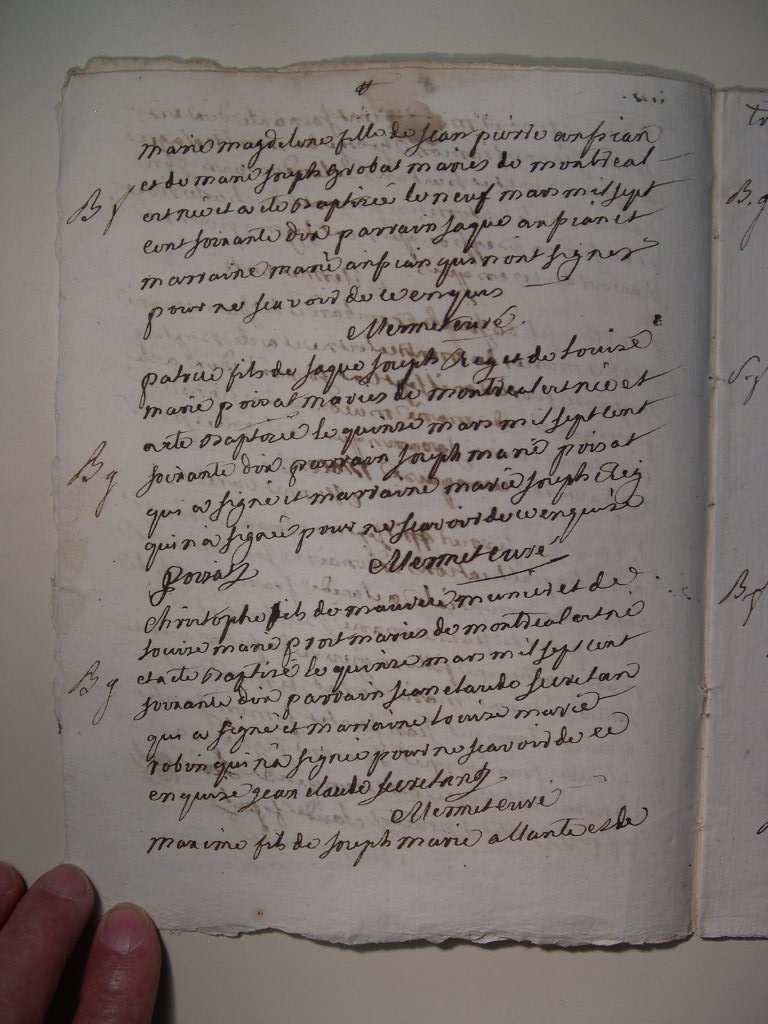 marie magdelene fille de jean pierre anssian
et de marie joseph grobat mariés de montreal
B f
est née et a ete baptizée le neuf mars mil sept
cent soixante dix parrain jaque ansian et
marraine marie anssian qui n ont signer
pour ne scavoir de ce enquis
Mermet curé
patrice fils de jaque joseph Reg et de louise
marie poizat mariés de montreal est née et
a ete baptizée le quinze mars mil sept cent
B g
soixante dix parrain joseph marie poizat
qui a signé et marraine marie joseph Reg
qui n a signée pour ne scavoir de ce enquise
Poizat Mermet curé
christophe fils de maurice munier et de
louise marie prost mariés de montreal est né
B g
et a ete baptizé le quinze mars mil sept cent
soixante dix parrain jean claude secretan
qui a signé et marraine louise marie
robin qui n a signée pour ne scavoir de ce
enquise jean claude secretan
Mermet curé
maxime fils de joseph marie allante et de
B. g
B g